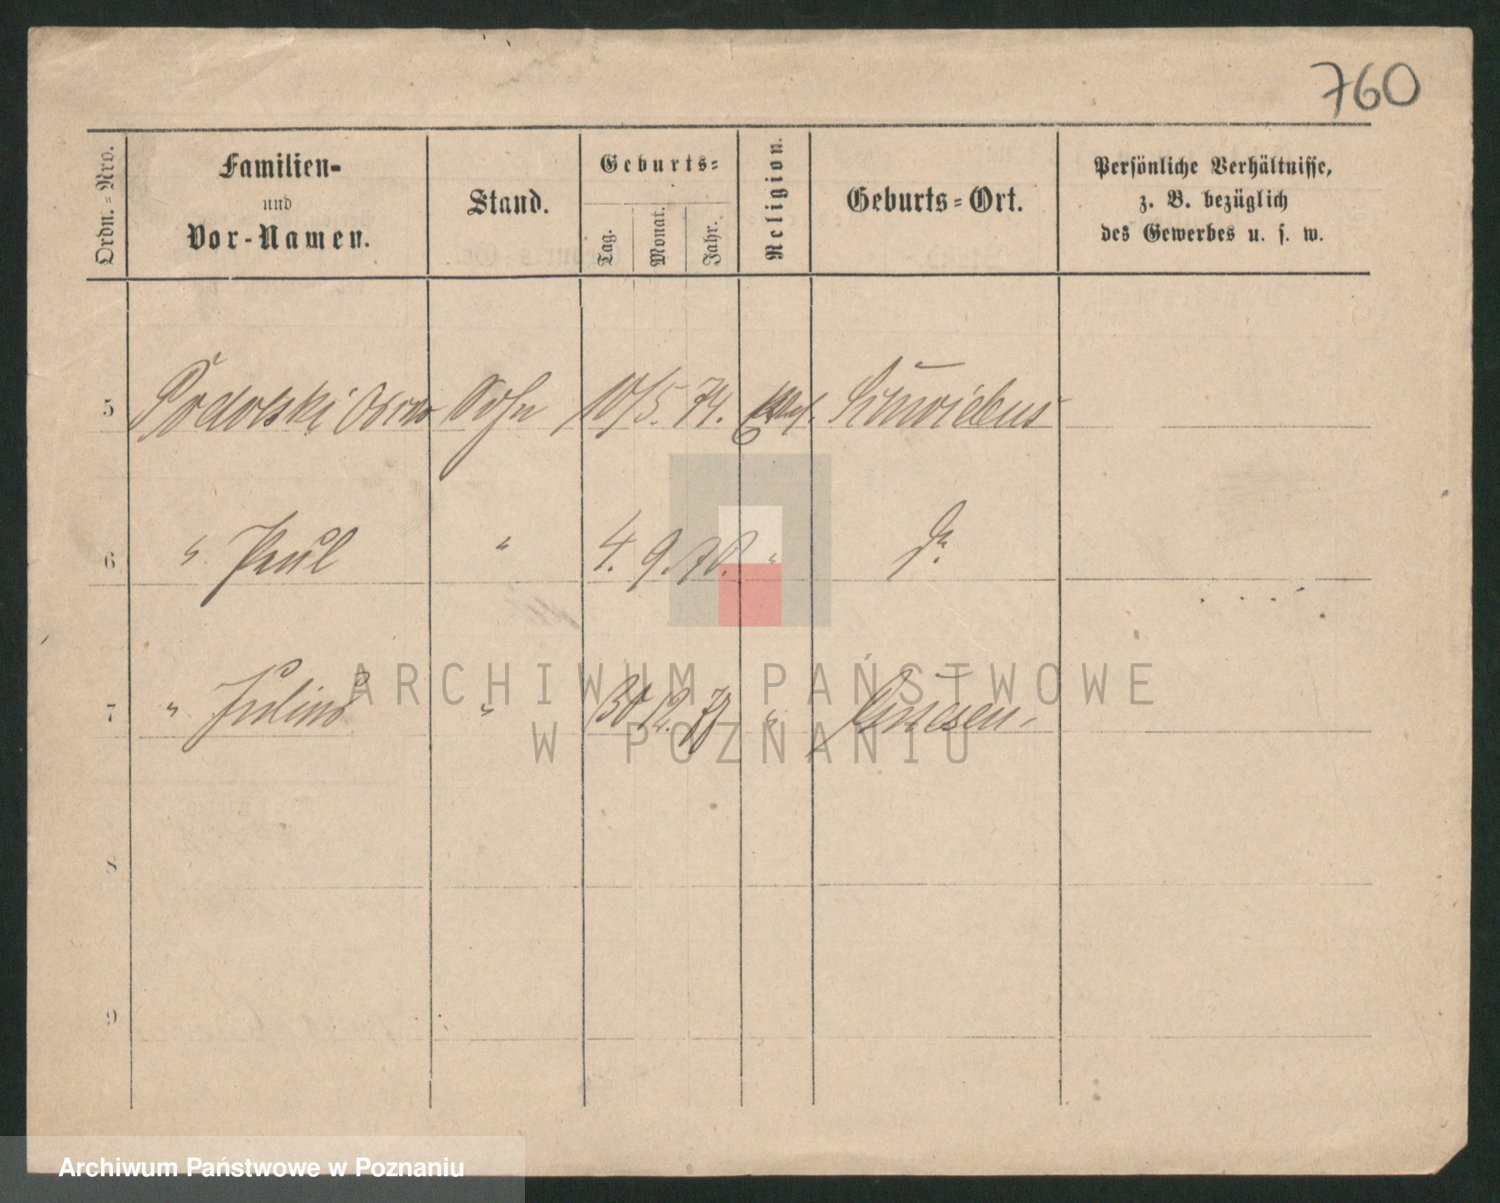 760
Ordn.=Nro.
Familien-
und
Vor-Namen.
Stand.
Geburts=
Tag.
Monat.
Jahr.
Religion.
Geburts=Ort.
Persönliche Verhältnisse,
z. B. bezüglich
des Gewerbes u. s. w.
5 Podolski Oscar Sohn 10/5. 74. Schwiebus
6 " Paul " 4. 9. " do.
7 " Julius " 30 12. " Gnesen.
8
9
ARCHIWUM PAŃSTWOWE
W POZNANIU
Archiwum Państwowe w Poznaniu